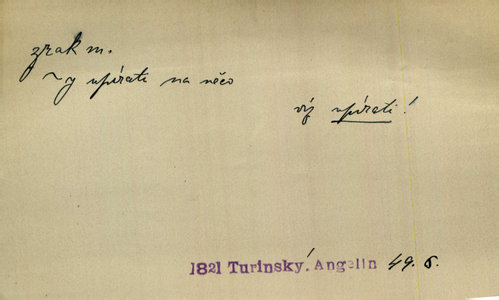 zrak m.
~y upírati na něco
viz upírati!
1821 Turinský, Angelin 49. 6.